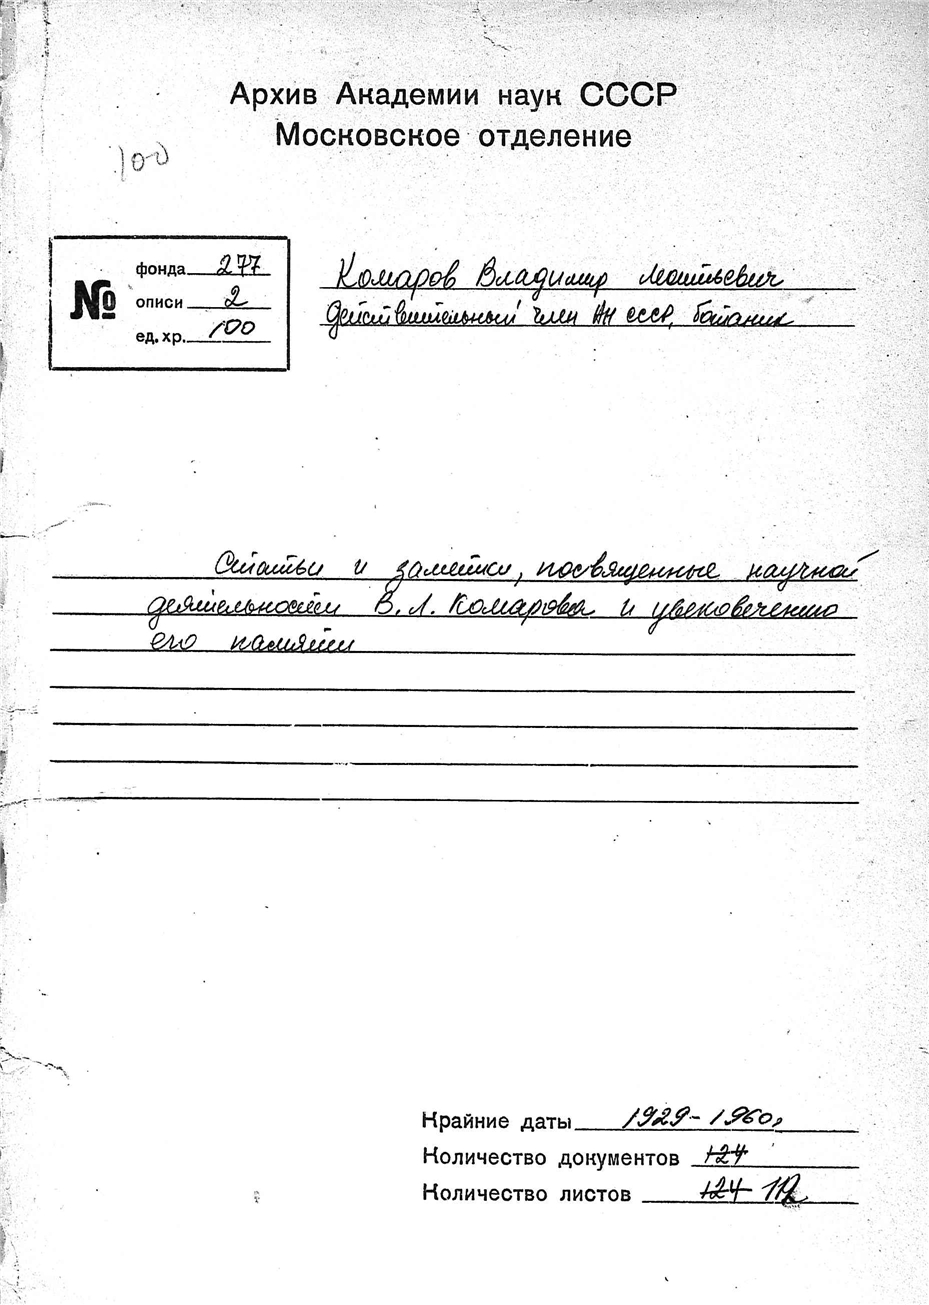 Архив Академии наук СССР
Московское отделение
100
№
фонда 277
описи 2
ед. хр. 100
Комаров Владимир Леонтьевич
Действительный член АН СССР, ботаник
Статьи и заметки, посвященные научной
деятельности В. Л. Комарова и увековечению
его памяти
Крайние даты 1929-1960г
Количество документов 124
Количество листов 124